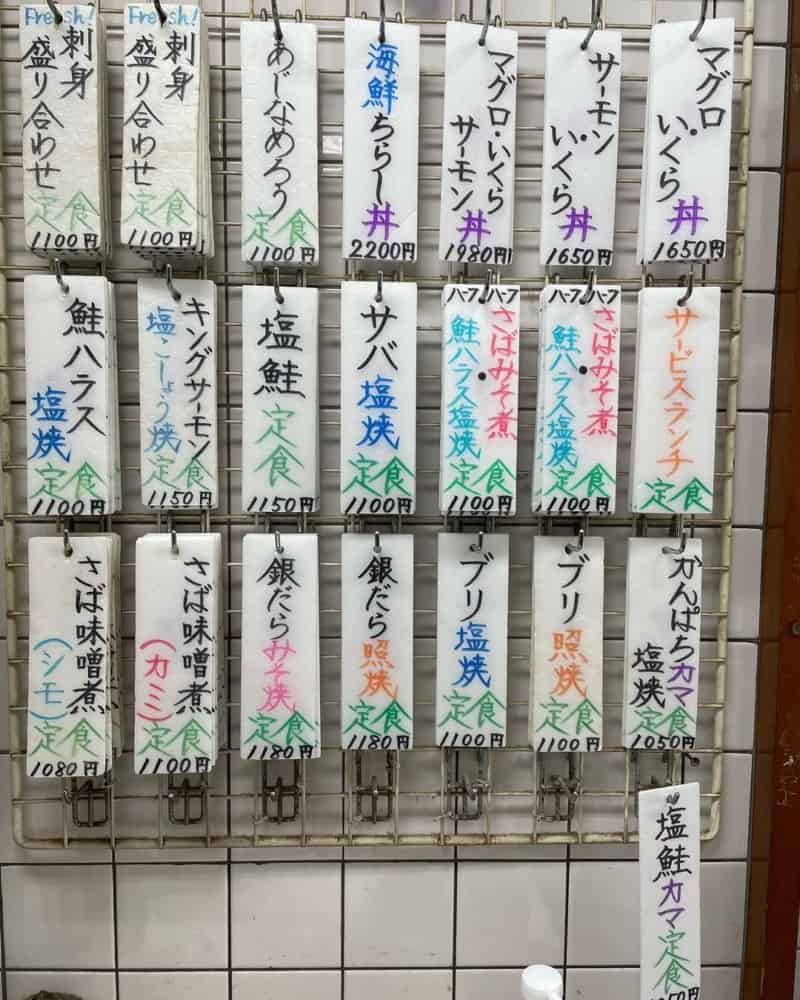 Fresh!
刺身
盛り合わせ
定食
1100円
Fresh!
刺身
盛り合わせ
定食
1100円
あじなめろう
定食
1100円
海鮮ちらし丼
2200円
マグロ・いくら
サーモン
丼
1980円
サーモン
・いくら
丼
1650円
マグロ
・いくら
丼
1650円
鮭ハラス
塩焼
定食
1100円
キングサーモン
塩こしょう焼
定食
1150円
塩鮭
定食
1150円
サバ塩焼
定食
1100円
ハーフ ハーフ
さばみそ煮
・
鮭ハラス塩焼
定食
1100円
ハーフ ハーフ
さばみそ煮
・
鮭ハラス塩焼
定食
1100円
サービスランチ
定食
さば味噌煮
(シモ)
定食
1080円
さば味噌煮
(カミ)
定食
1100円
銀だらみそ焼
定食
1180円
銀だら照焼
定食
1180円
ブリ塩焼
定食
1100円
ブリ照焼
定食
1100円
かんぱちカマ
塩焼
定食
1050円
塩鮭カマ定食